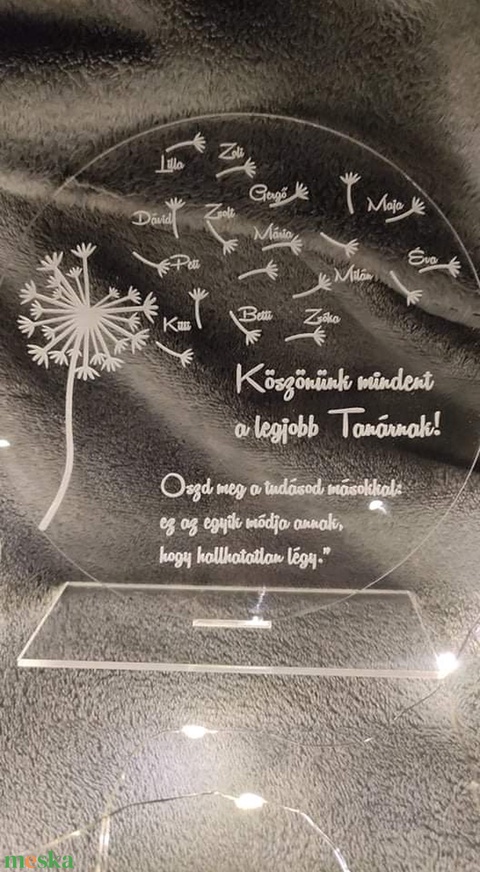 Lilla
Zoli
Gergő
Maja
Dávid
Zsolt
Mária
Éva
Peti
Milán
Kitti
Betti
Zsóka
Köszönünk mindent
a legjobb Tanárnak!
Oszd meg a tudásod másokkal:
ez az egyik módja annak,
hogy hallhatatlan légy."
meska